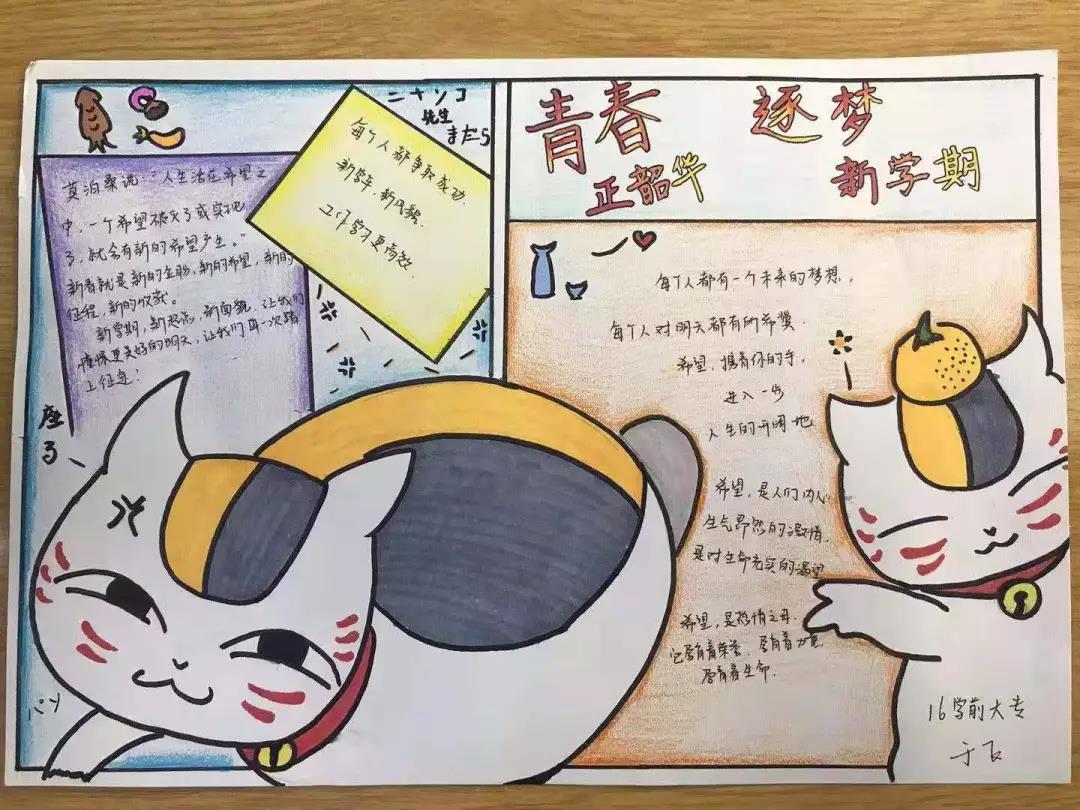 ニャンコ
先生
まだら
莫泊桑说：“人生活在希望之
中，一个希望破灭了或实现
了，就会有新的希望产生。”
新春就是新的企盼、新的希望、新的
征程、新的收获。
新学期，新起点，新面貌，让我们
憧憬更美好的明天，让我们再一次踏
上征途！
每个人都争取成功，
新学年，新风貌，
工作学习更高效。
青春 逐梦
正韶华 新学期
每个人都有一个未来的梦想，
每个人对明天都有所希冀，
希望，携着你的手，
进入一步
人生的开明地
希望，是人们内心
生气昂然的激情，
是对生命充实的渴望
希望，是热情之母，
它孕育着荣誉，孕育着力量，
孕育着生命．
16学前大专
于飞